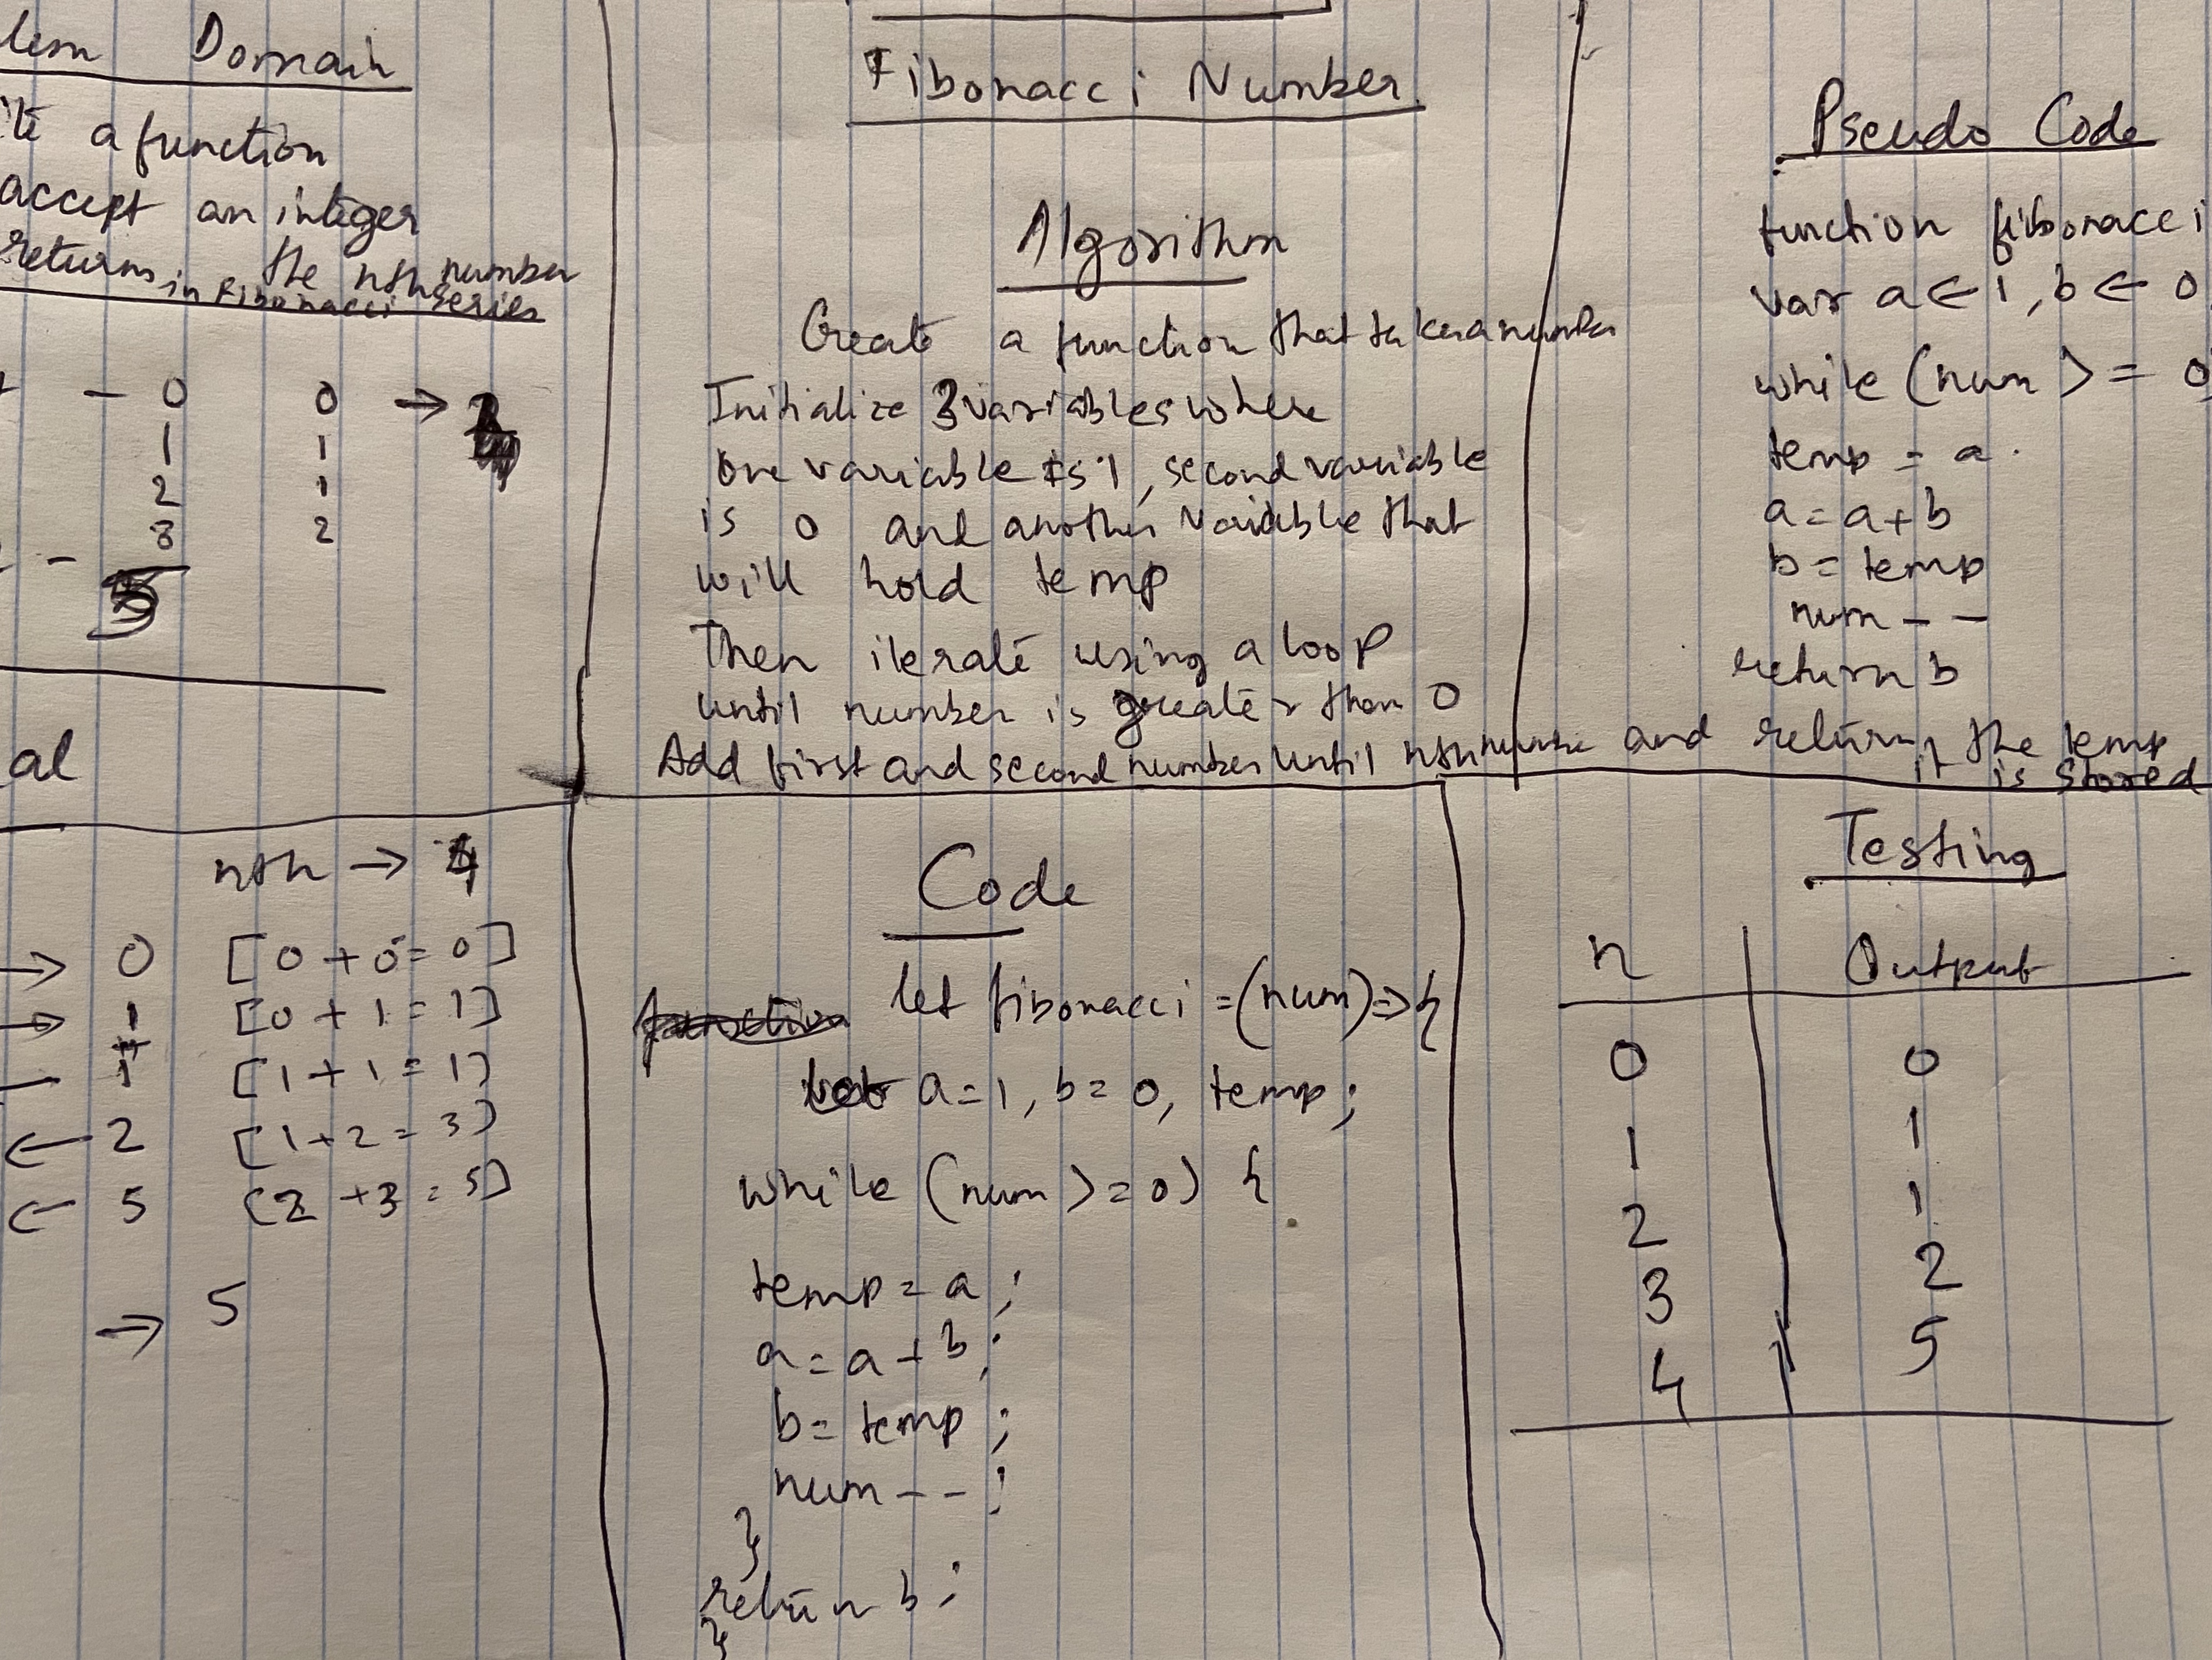 Domain
a function
accept an integer
returns the nth number
in Fibonacci series
- 0 0 →
1 1
2 1
3 2
-
al
nth → 4
→ 0 [0 + 0 = 0]
→ 1 [0 + 1 = 1]
1 [1 + 1 = 1]
← 2 [1 + 2 = 3)
← 5 (2 + 3 = 5)
→ 5
Fibonacci Number
Algorithm
Create a function that takes a number
Initialize 3 variables where
one variable is 1, second variable
is 0 and another variable that
will hold temp
Then iterate using a loop
until number is greater than 0
Add first and second number until nth and return the temp
it is stored
Pseudo Code
function fibonacci
var a ← 1, b ← 0
while (num >= 0
temp = a.
a = a+b
b = temp
num - -
return b
Code
function let fibonacci = (num) => {
let a = 1, b = 0, temp;
while (num >= 0) {
temp = a;
a = a + b;
b = temp;
num - - ;
}
return b;
}
Testing
n Output
0 0
1 1
2 1
3 2
4 5